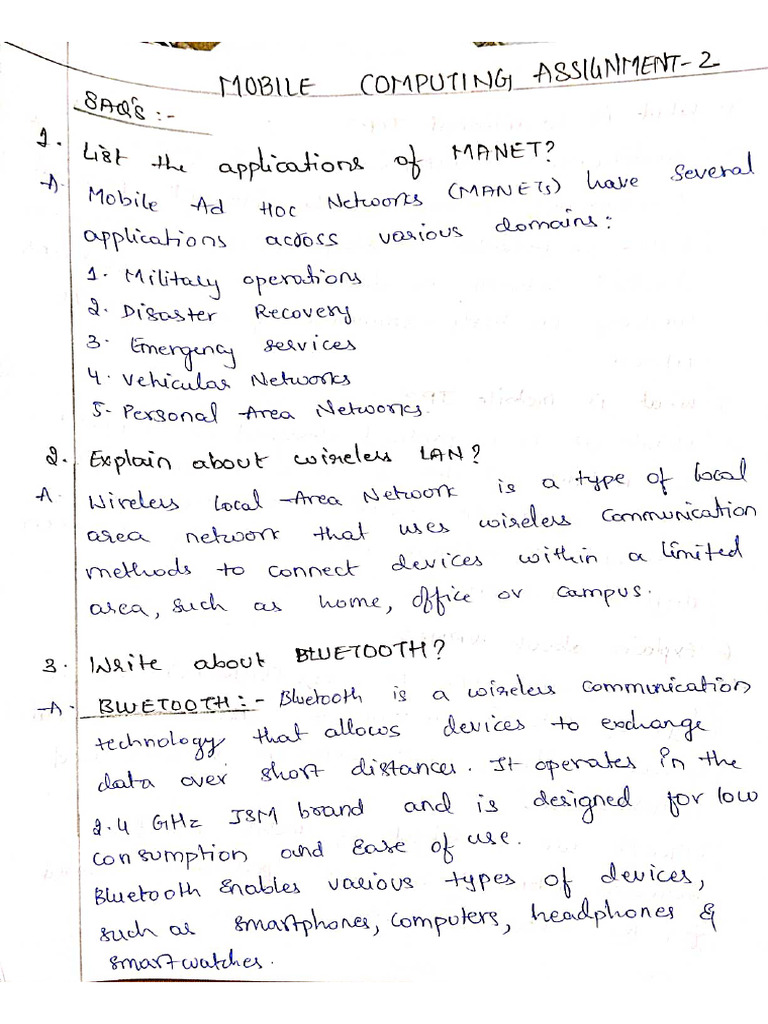 MOBILE COMPUTING ASSIGNMENT-2
SAQ'S :-
1. List the applications of MANET?
A. Mobile Ad Hoc Networks (MANETs) have several
applications across various domains:
1. Military operations
2. Disaster Recovery
3. Emergency services
4. Vehicular Networks
5. Personal Area Networks.
2. Explain about wireless LAN?
A. Wireless Local Area Network is a type of local
area network that uses wireless communication
methods to connect devices within a limited
area, such as home, office or campus.
3. Write about BLUETOOTH?
A. BLUETOOTH:- Bluetooth is a wireless communication
technology that allows devices to exchange
data over short distances. It operates in the
2.4 GHz ISM brand and is designed for low
consumption and Ease of use.
Bluetooth Enables various types of devices,
such as smartphones, computers, headphones &
smartwatches.